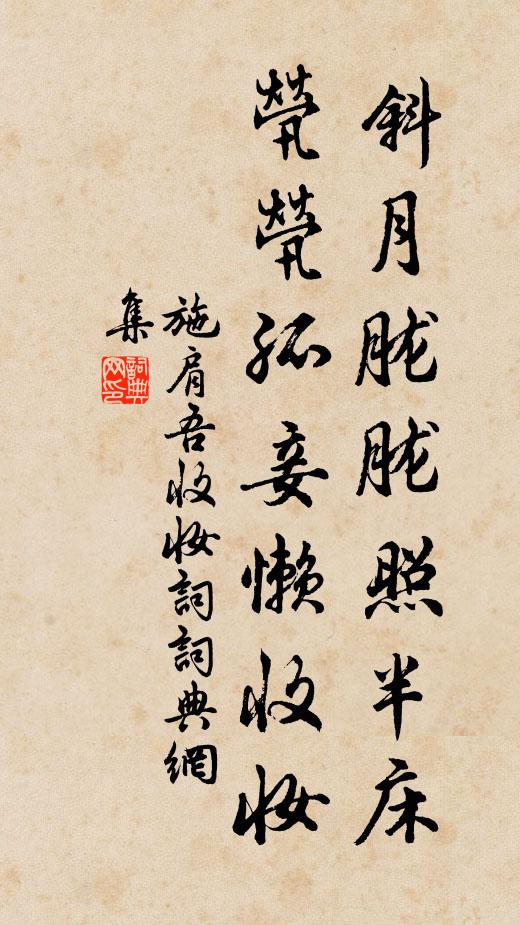 斜月胧胧照半床
煢煢孤妾懶收妆
施肩吾收妆詞詞典網
集
詞典
网印